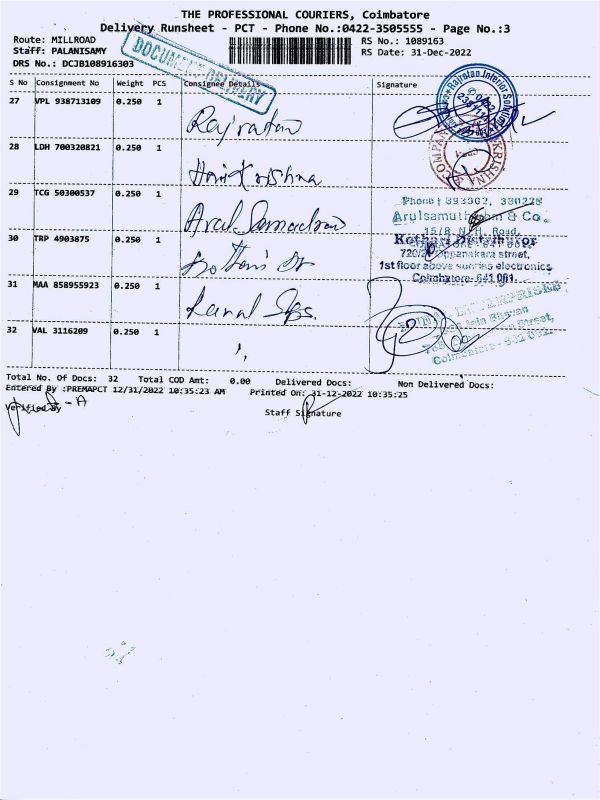 THE PROFESSIONAL COURIERS, Coimbatore
Delivery Runsheet - PCT - Phone No.:0422-3505555 - Page No.:3
Route: MILLROAD
RS No.: 1089163
Staff: PALANISAMY
RS Date: 31-Dec-2022
DRS No.: DCJB108916303
DOCUMENT DELIVERY
S No Consignment No Weight PCS Consignee Details Signature
27 VPL 938713109 0.250 1 Rajratan
28 LDH 700320821 0.250 1 Hari Krishna
29 TCG 50300537 0.250 1 Arul Samudram
Phone : 393002, 380228
Arulsamuthram & Co.
15/8, N.H. Road,
30 TRP 4903875 0.250 1
Kothari Distributor
Oppanakara street,
1st floor above sunrise electronics
Coimbatore- 641 001.
31 MAA 858955923 0.250 1
ENTERPRISES
Jain Bhavan
Street,
32 VAL 3116209 0.250 1 ,,
Coimbatore
Total No. Of Docs: 32 Total COD Amt: 0.00 Delivered Docs: Non Delivered Docs:
Entered By :PREMAPCT 12/31/2022 10:35:23 AM Printed On: 31-12-2022 10:35:25
Verified By
Staff Signature